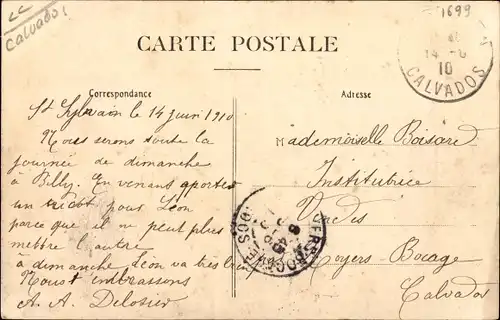 CALVADOS
1699
14 -6
10
CALVADOS
CARTE POSTALE
Correspondance
Adresse
St Sylvain le 14 juin 1910
Nous serons toute la
journée de dimanche
à Billy. En venant apportes
un tricot pour Léon
parce que il ne peut plus
mettre l'autre
à dimanche Léon va très bien
Nous t embrassons
A. A. Delosier
Mademoiselle Boisard
Institutrice
Noyers-Bocage
Calvados